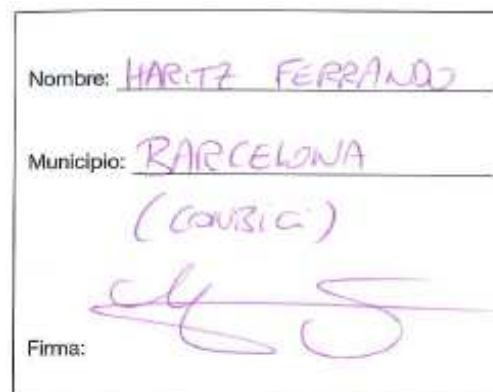 Nombre: HARITZ FERRANDO
Municipio: BARCELONA
(CONBICI)
Firma: